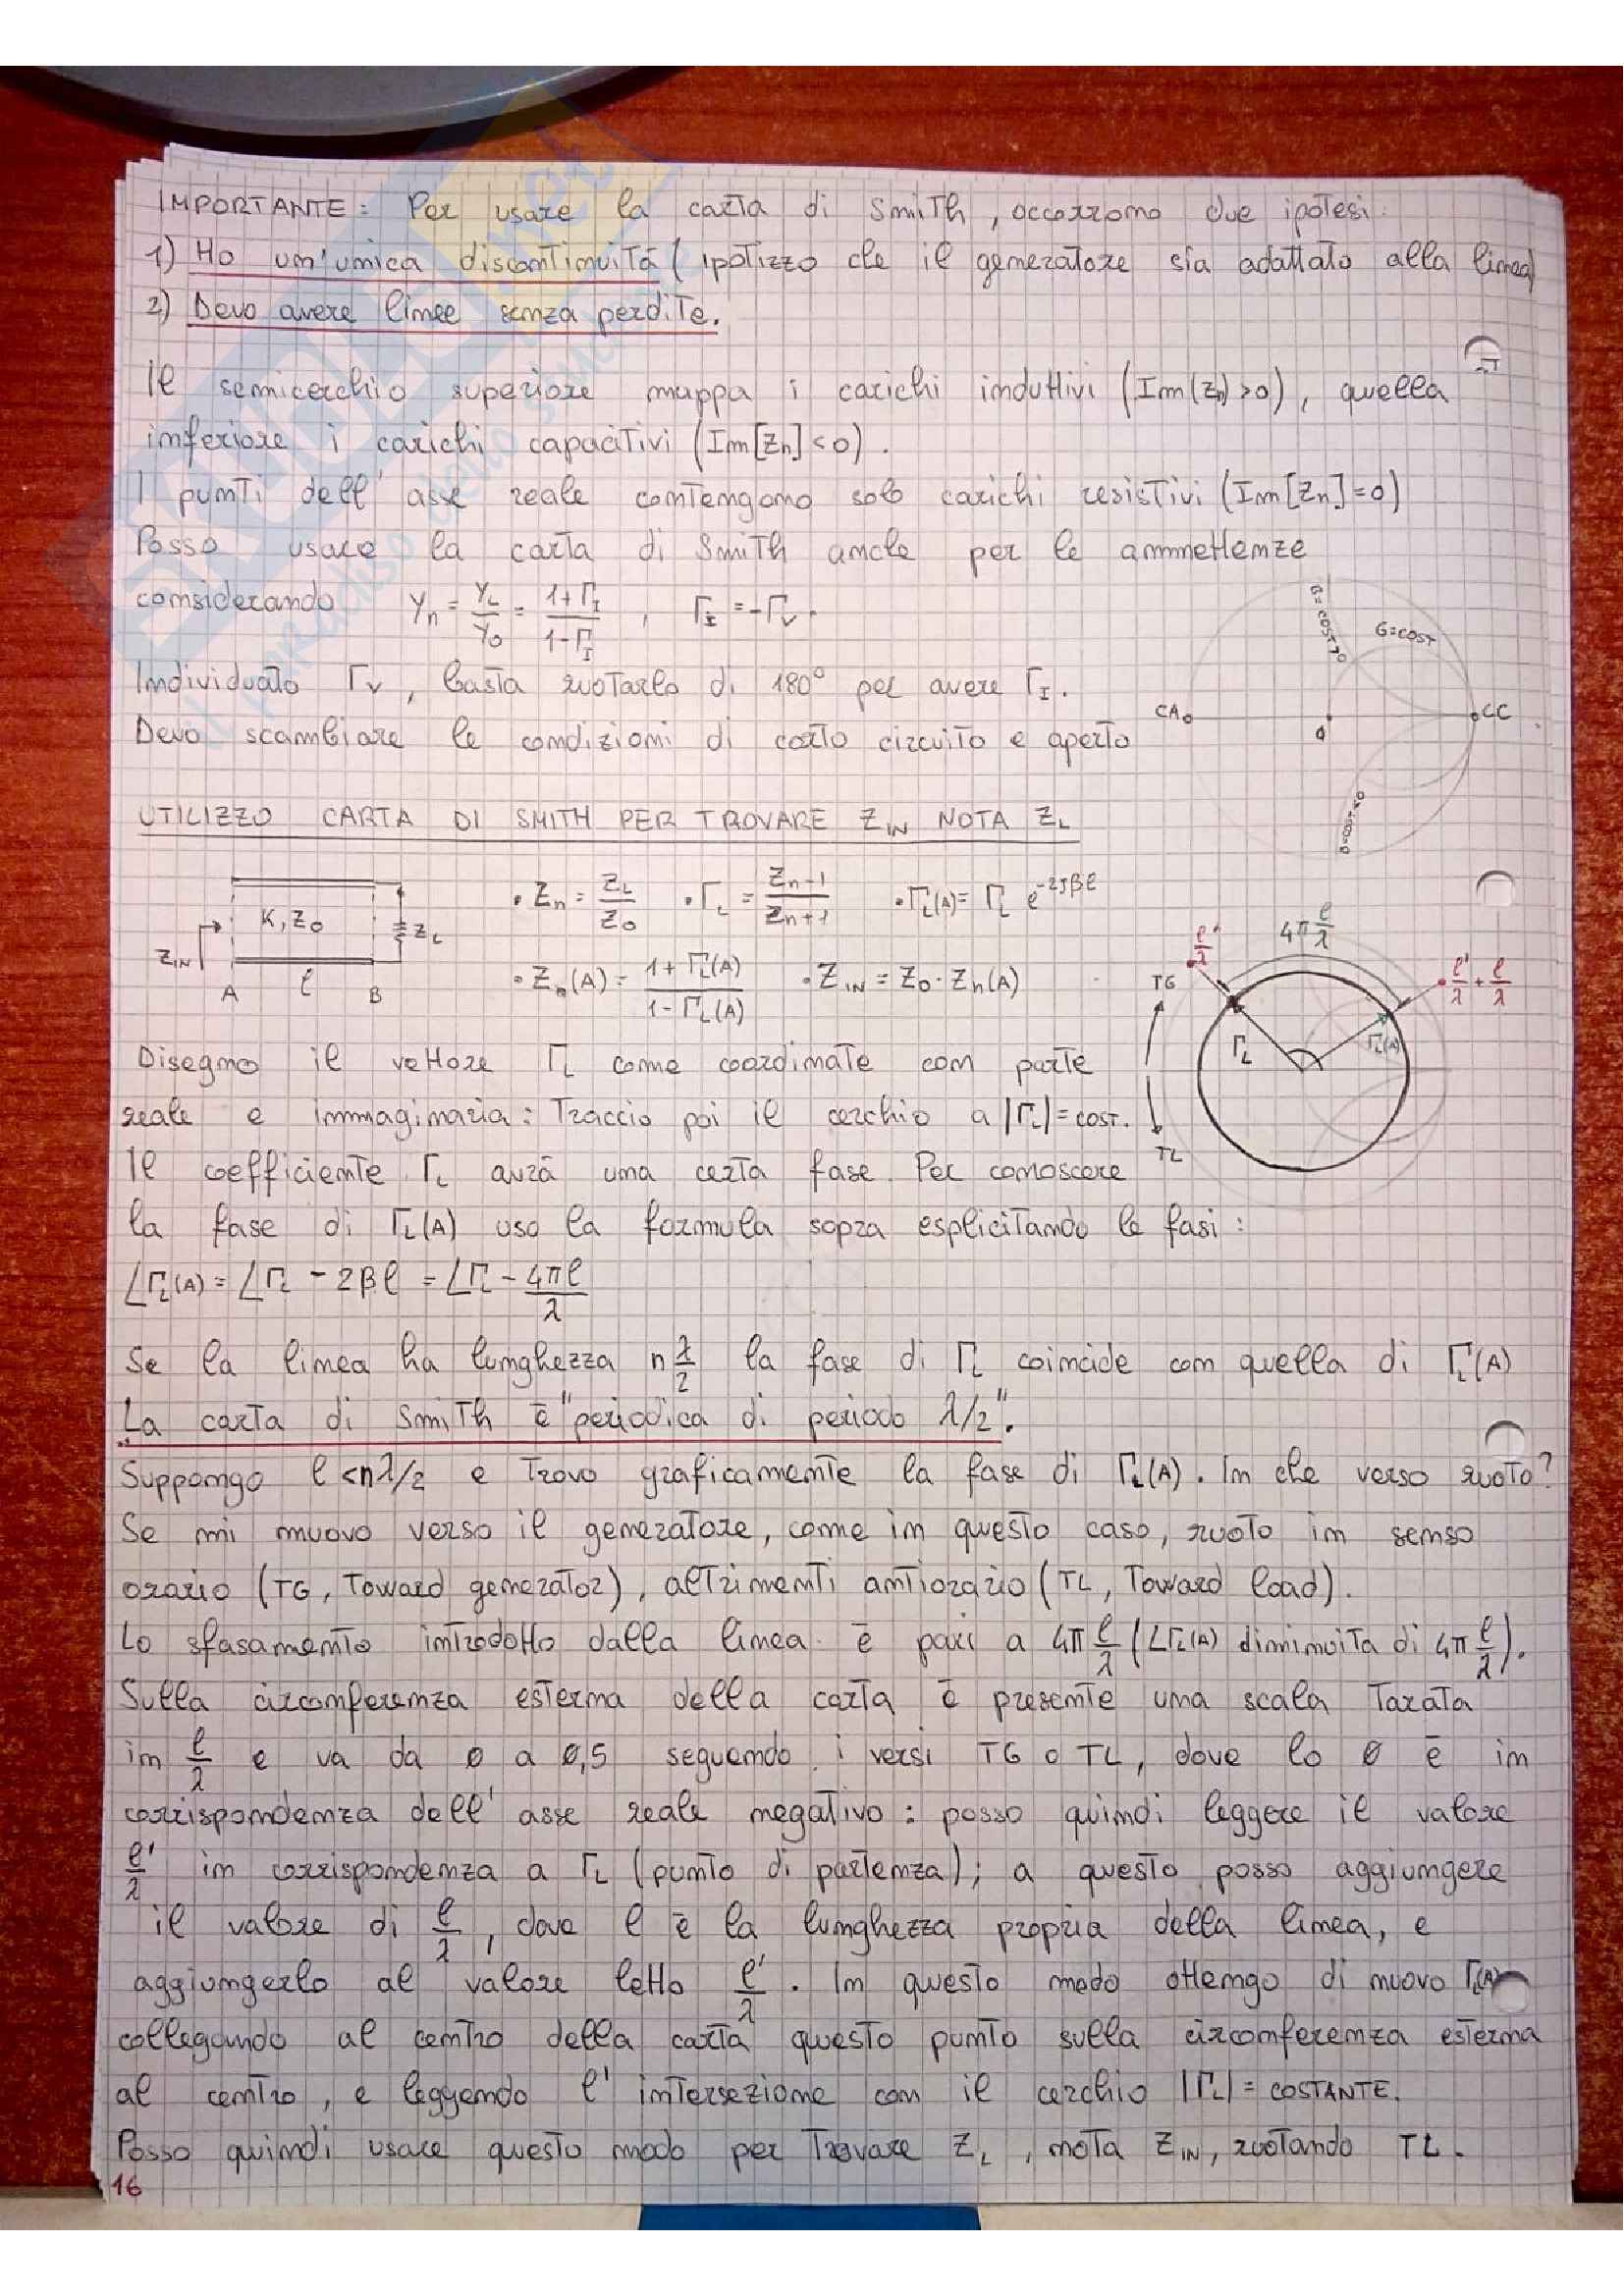 IMPORTANTE: Per usare la carta di Smith, occorrono due ipotesi:
1) Ho un'unica discontinuità (ipotizzo che il generatore sia adattato alla linea)
2) Devo avere linee senza perdite.
Il semicerchio superiore mappa i carichi induttivi (Im(Zn)>0), quella
inferiore i carichi capacitivi (Im[Zn]<0).
I punti dell'asse reale contengono solo carichi resistivi (Im[Zn]=0)
Posso usare la carta di Smith anche per le ammettenze
considerando Yn = YL/Y0 = 1+ΓI/1-ΓI , ΓI = -ΓV.
Individuato ΓV, basta ruotarlo di 180° per avere ΓI.
Devo scambiare le condizioni di corto circuito e aperto
B=COST>0
G=COST
CA
CC
0
B=COST<0
UTILIZZO CARTA DI SMITH PER TROVARE ZIN NOTA ZL
K, Z0
ZL
ZIN
A l B
• Zn = ZL/Z0 • ΓL = Zn-1/Zn+1 • ΓL(A) = ΓL e^-2jβl
• Zn(A) = 1+ΓL(A)/1-ΓL(A) • ZIN = Z0 · Zn(A)
4π l/λ
l'/λ
l'/λ + l/λ
TG
ΓL
ΓL(A)
TL
Disegno il vettore ΓL come coordinate con parte
reale e immaginaria: Traccio poi il cerchio a |ΓL| = COST.
Il coefficiente ΓL avrà una certa fase. Per conoscere
la fase di ΓL(A) uso la formula sopra esplicitando le fasi:
∠ΓL(A) = ∠ΓL - 2βl = ∠ΓL - 4πl/λ
Se la linea ha lunghezza n λ/2 la fase di ΓL coincide con quella di ΓL(A)
La carta di Smith è "periodica di periodo λ/2".
Suppongo l<nλ/2 e trovo graficamente la fase di ΓL(A). In che verso ruoto?
Se mi muovo verso il generatore, come in questo caso, ruoto in senso
orario (TG, Toward generator), altrimenti antiorario (TL, Toward load).
Lo sfasamento introdotto dalla linea è pari a 4π l/λ (∠ΓL(A) diminuita di 4π l/λ).
Sulla circonferenza esterna della carta è presente una scala tarata
in l/λ e va da 0 a 0,5 seguendo i versi TG o TL, dove lo 0 è in
corrispondenza dell'asse reale negativo: posso quindi leggere il valore
l'/λ in corrispondenza a ΓL (punto di partenza); a questo posso aggiungere
il valore di l/λ, dove l è la lunghezza propria della linea, e
aggiungerlo al valore letto l'/λ. In questo modo ottengo di nuovo ΓL(A)
collegando al centro della carta questo punto sulla circonferenza esterna
al centro, e leggendo l'intersezione con il cerchio |ΓL| = COSTANTE.
Posso quindi usare questo modo per trovare ZL, nota ZIN, ruotando TL.
16